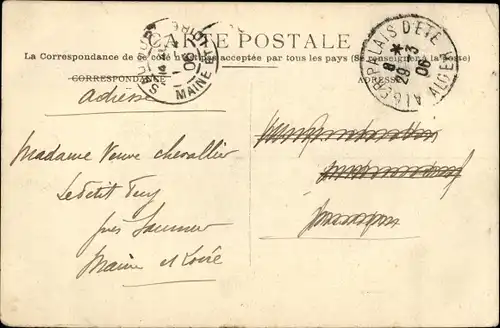 CARTE POSTALE
La Correspondance de ce côté n'est pas acceptée par tous les pays (Se renseigner à la Poste)
CORRESPONDANCE
ADRESSE
SAUMUR
MAINE-ET-LOIRE
ALGER PALAIS D'ÉTÉ
8 *
29 -3
06
ALGER
adresse
Madame Veuve Chevallier
Le Petit Puy
près Saumur
Maine et Loire